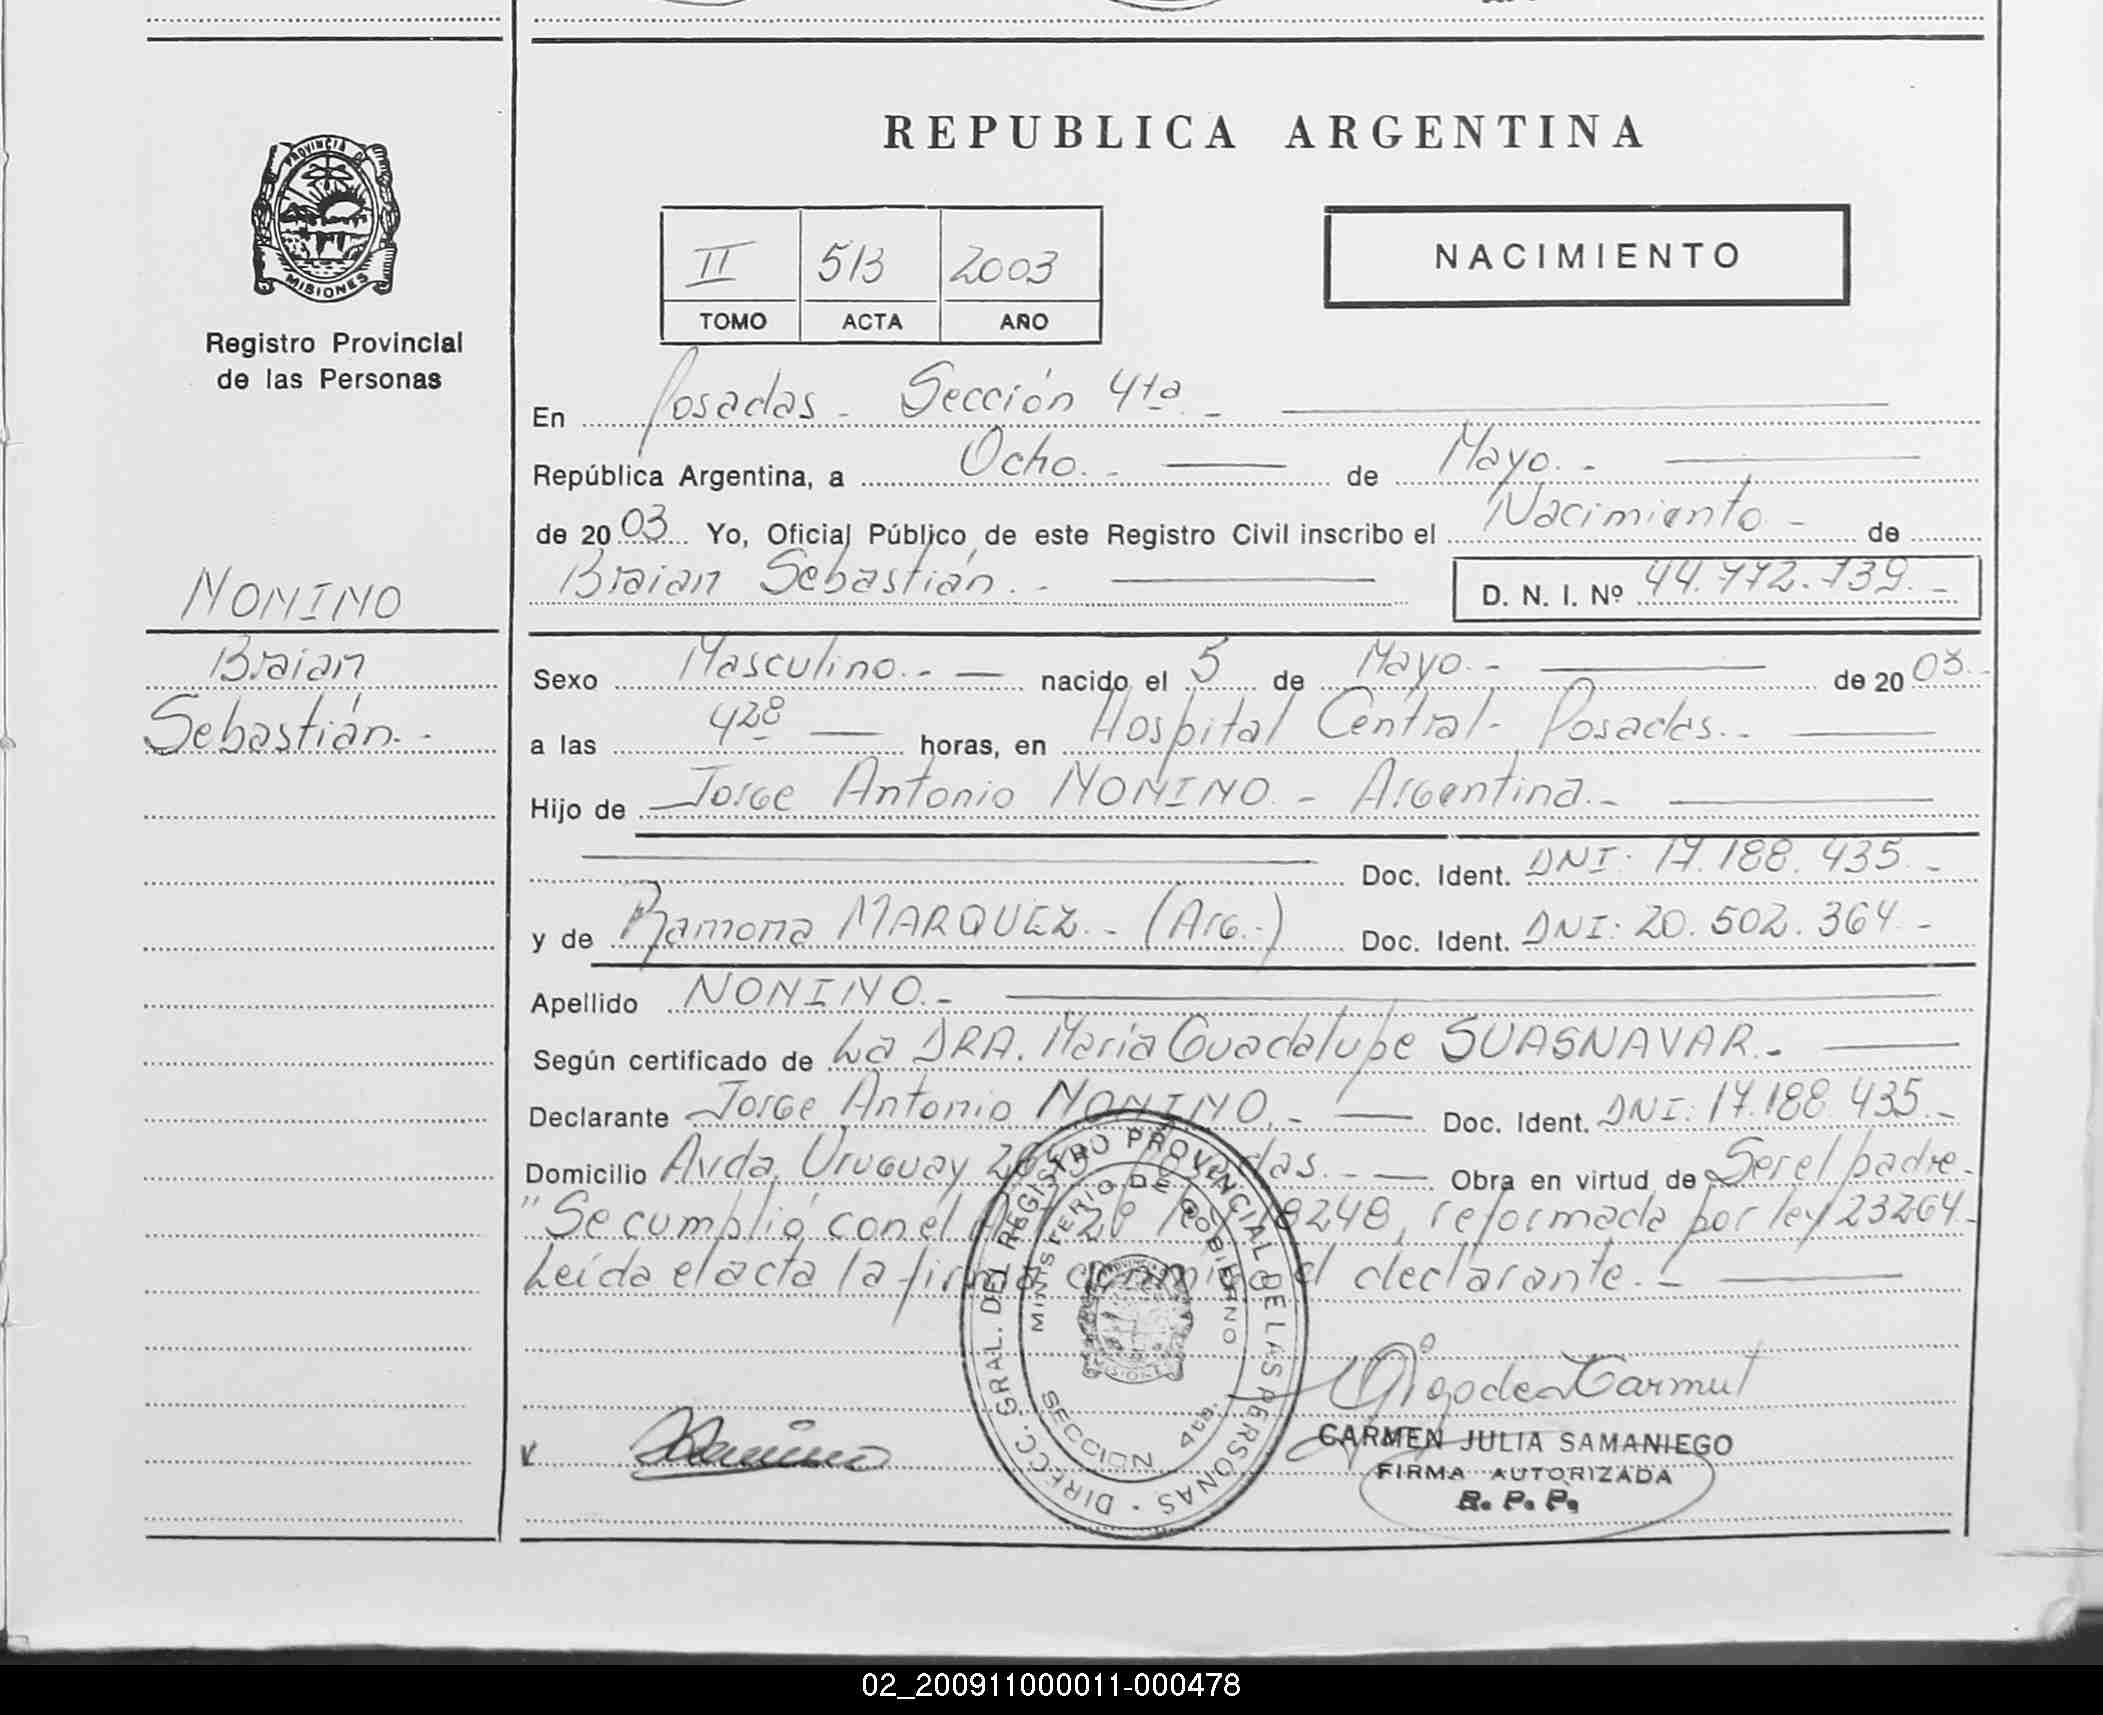 PROVINCIA DE
MISIONES
Registro Provincial
de las Personas
NONINO
Braian
Sebastián.-
REPUBLICA ARGENTINA
II 513 2003
TOMO ACTA AÑO
NACIMIENTO
En Posadas - Sección 4ta.-
República Argentina, a Ocho.- de Mayo.-
de 2003 Yo, Oficial Público de este Registro Civil inscribo el Nacimiento - de
Braian Sebastián.- D. N. I. Nº 44.772.739.-
Sexo Masculino.- nacido el 5 de Mayo.- de 2003.-
a las 428 horas, en Hospital Central - Posadas.-
Hijo de Jorge Antonio NONINO.- Argentina.-
Doc. Ident. DNI: 17.188.435.-
y de Ramona MARQUEZ.- (Arg.-) Doc. Ident. DNI: 20.502.364.-
Apellido NONINO.-
Según certificado de La DRA. María Guadalupe SUASNAVAR.-
Declarante Jorge Antonio NONINO.- Doc. Ident. DNI: 17.188.435.-
Domicilio Avda. Uruguay Posadas.- Obra en virtud de Ser el padre.-
"Se cumplió con el 8248, reformada por ley 23264.-
Leída el acta la firma conmigo el declarante.-
DIRECC. GRAL. DEL REGISTRO PROVINCIAL DE LAS PERSONAS
MINISTERIO DE GOBIERNO
SECCION 4ta.
CARMEN JULIA SAMANIEGO
FIRMA AUTORIZADA
R. P. P.
02_200911000011-000478